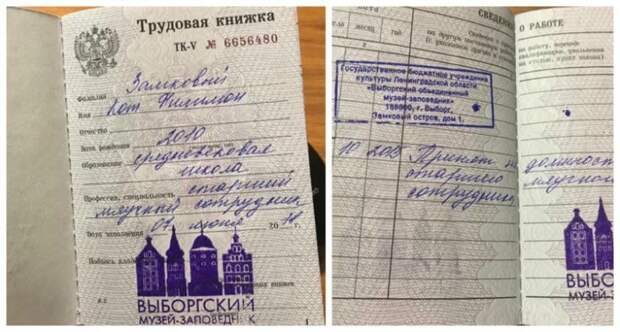 Трудовая книжка
ТК-V № 6656480
Замковый
Фамилия
Имя Кот Филимон
Отчество
Дата рождения 2010
Образование средневековая
школа
Профессия, специальность старший
мяучный сотрудник
Дата заполнения 07 июня
Подпись
ВЫБОРГСКИЙ
МУЗЕЙ-ЗАПОВЕДНИК
СВЕДЕНИЯ
месяц год
Государственное бюджетное учреждение
культуры Ленинградской области
"Выборгский объединенный
музей-заповедник"
188800, г. Выборг,
Замковый остров, дом 1.
10 2015 Принят на
старшего
сотрудника
О РАБОТЕ
должность
мяучного
ВЫБОРГ
МУЗЕЙ-ЗАП